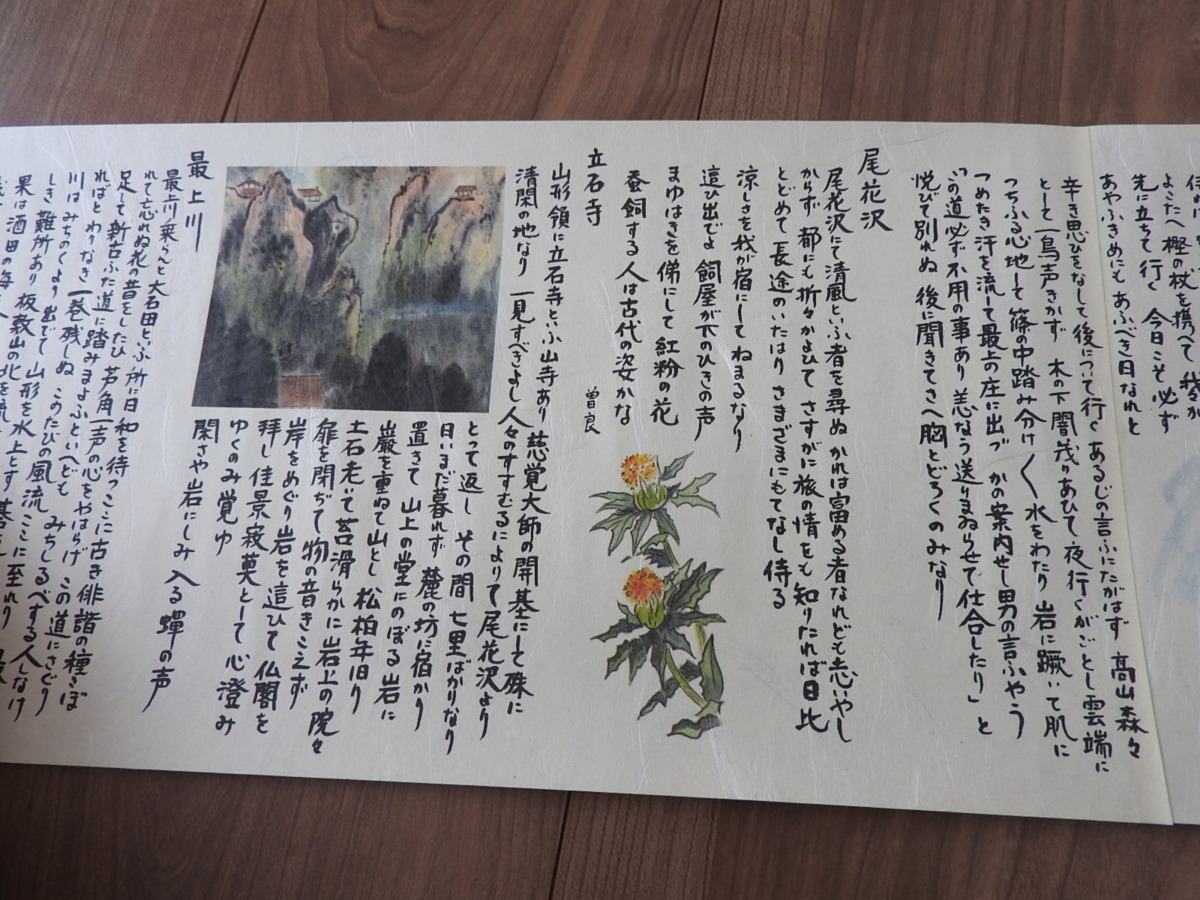 よこたへ樫の杖を携へて我々が
先に立ちて行く今日こそ必ず
あやふきめにもあふべき日なれと
辛き思ひをなして後について行くあるじの言ふにたがはず高山森々
として一鳥声きかず木の下闇茂りあひて夜行くがごとし雲端に
つちふる心地して篠の中踏み分け〱水をわたり岩に蹶いて肌に
つめたき汗を流して最上の庄に出づかの案内せし男の言ふやう
「この道必ず不用の事あり恙なう送りまゐらせて仕合したり」と
悦びて別れぬ後に聞きてさへ胸とどろくのみなり
尾花沢
尾花沢にて清風といふ者を尋ぬかれは富める者なれども志いやし
からず都にも折々かよひてさすがに旅の情をも知りたれば日比
とどめて長途のいたはりさまざまにもてなし侍る
涼しさを我が宿にしてねまるなり
這ひ出でよ飼屋が下のひきの声
まゆはきを俤にして紅粉の花
蚕飼する人は古代の姿かな
曽良
立石寺
山形領に立石寺といふ山寺あり慈覚大師の開基にして殊に
清閑の地なり一見すべきよし人々のすすむるによりて尾花沢より
とって返しその間七里ばかりなり
日いまだ暮れず麓の坊に宿かり
置きて山上の堂にのぼる岩に
巌を重ねて山とし松柏年旧り
土石老いて苔滑らかに岩上の院々
扉を閉ぢて物の音きこえず
岸をめぐり岩を這ひて仏閣を
拝し佳景寂莫として心澄み
ゆくのみ覚ゆ
閑さや岩にしみ入る蟬の声
最上川
最上川乗らんと大石田といふ所に日和を待つここに古き俳諧の種こぼ
れて忘れぬ花の昔をしたひ芦角一声の心をやはらげこの道にさぐり
足して新古ふた道に踏みまよふといへどもみちしるべする人しなけ
ればとわりなき一巻残しぬこのたびの風流ここに至れり
川はみちのくより出でて山形を水上とす
しき難所あり板敷山の北を流
果は酒田の海